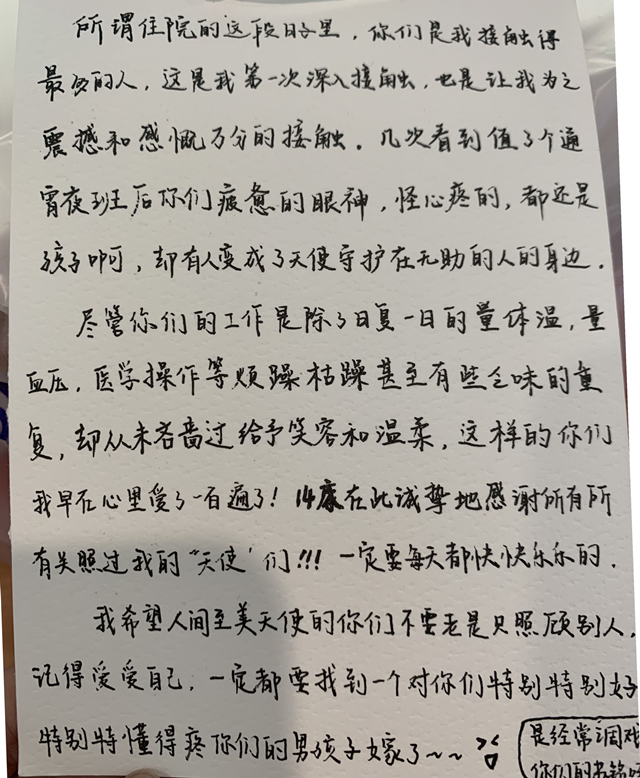 所谓住院的这段日子里，你们是我接触得
最多的人，这是我第一次深入接触，也是让我为之
震撼和感慨万分的接触。几次看到值了个通
宵夜班后你们疲惫的眼神，怪心疼的，都还是
孩子啊，却有人变成了天使守护在无助的人的身边。
尽管你们的工作是除了日复一日的量体温，量
血压，医学操作等烦躁枯躁甚至有些乏味的重
复，却从未吝啬过给予笑容和温柔，这样的你们
我早在心里爱了一百遍了！14床在此诚挚地感谢所有所
有关照过我的“天使”们!!! 一定要每天都快快乐乐的.
我希望人间至美天使的你们不要老是只照顾别人，
记得爱爱自己，一定都要找到一个对你们特别特别好
特别特懂得疼你们的男孩子嫁了~~
是经常调戏
你们的